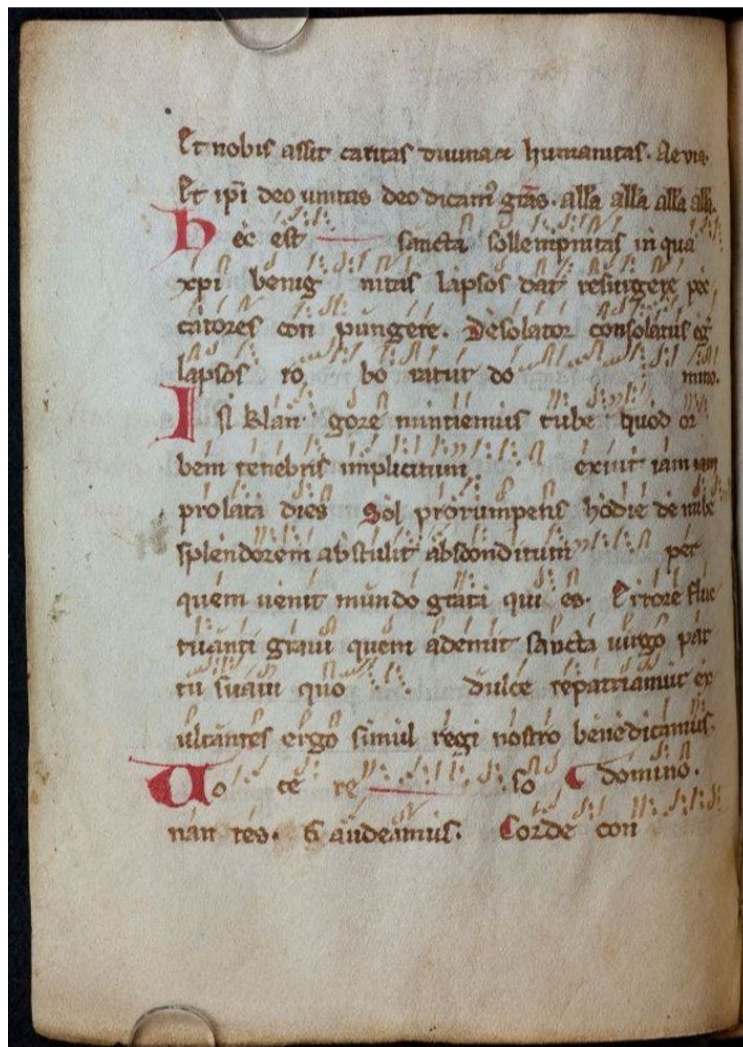 Et nobis assit caritas diuina & humanitas. Aevia.
Et ip̄i deo unitas deo dicam⁹ grās. all'a all'a all'a all'a.
Hec est sancta sollempnitas in qua
xp̄i benig nitas lapsos dat resurgere pec
catores con pungere. Desolator consolatus
lapsos ro bo ratur do mino.
I si klan gore nuntiemus tube quod or
bem tenebris implicitum exiuit iam iam
prolata dies Sol prorumpens hodie de nube
splendorem abstulit absconditum per
quem uenit mundo grata qui es. Errore fluc
tuanti graui quem ademit sancta uirgo par
tu suaui quo dulce repatriamur ex
ultantes ergo simul regi nostro benedicamus.
Uo ce re so domino.
nan tes. Gaudeamus. Corde con